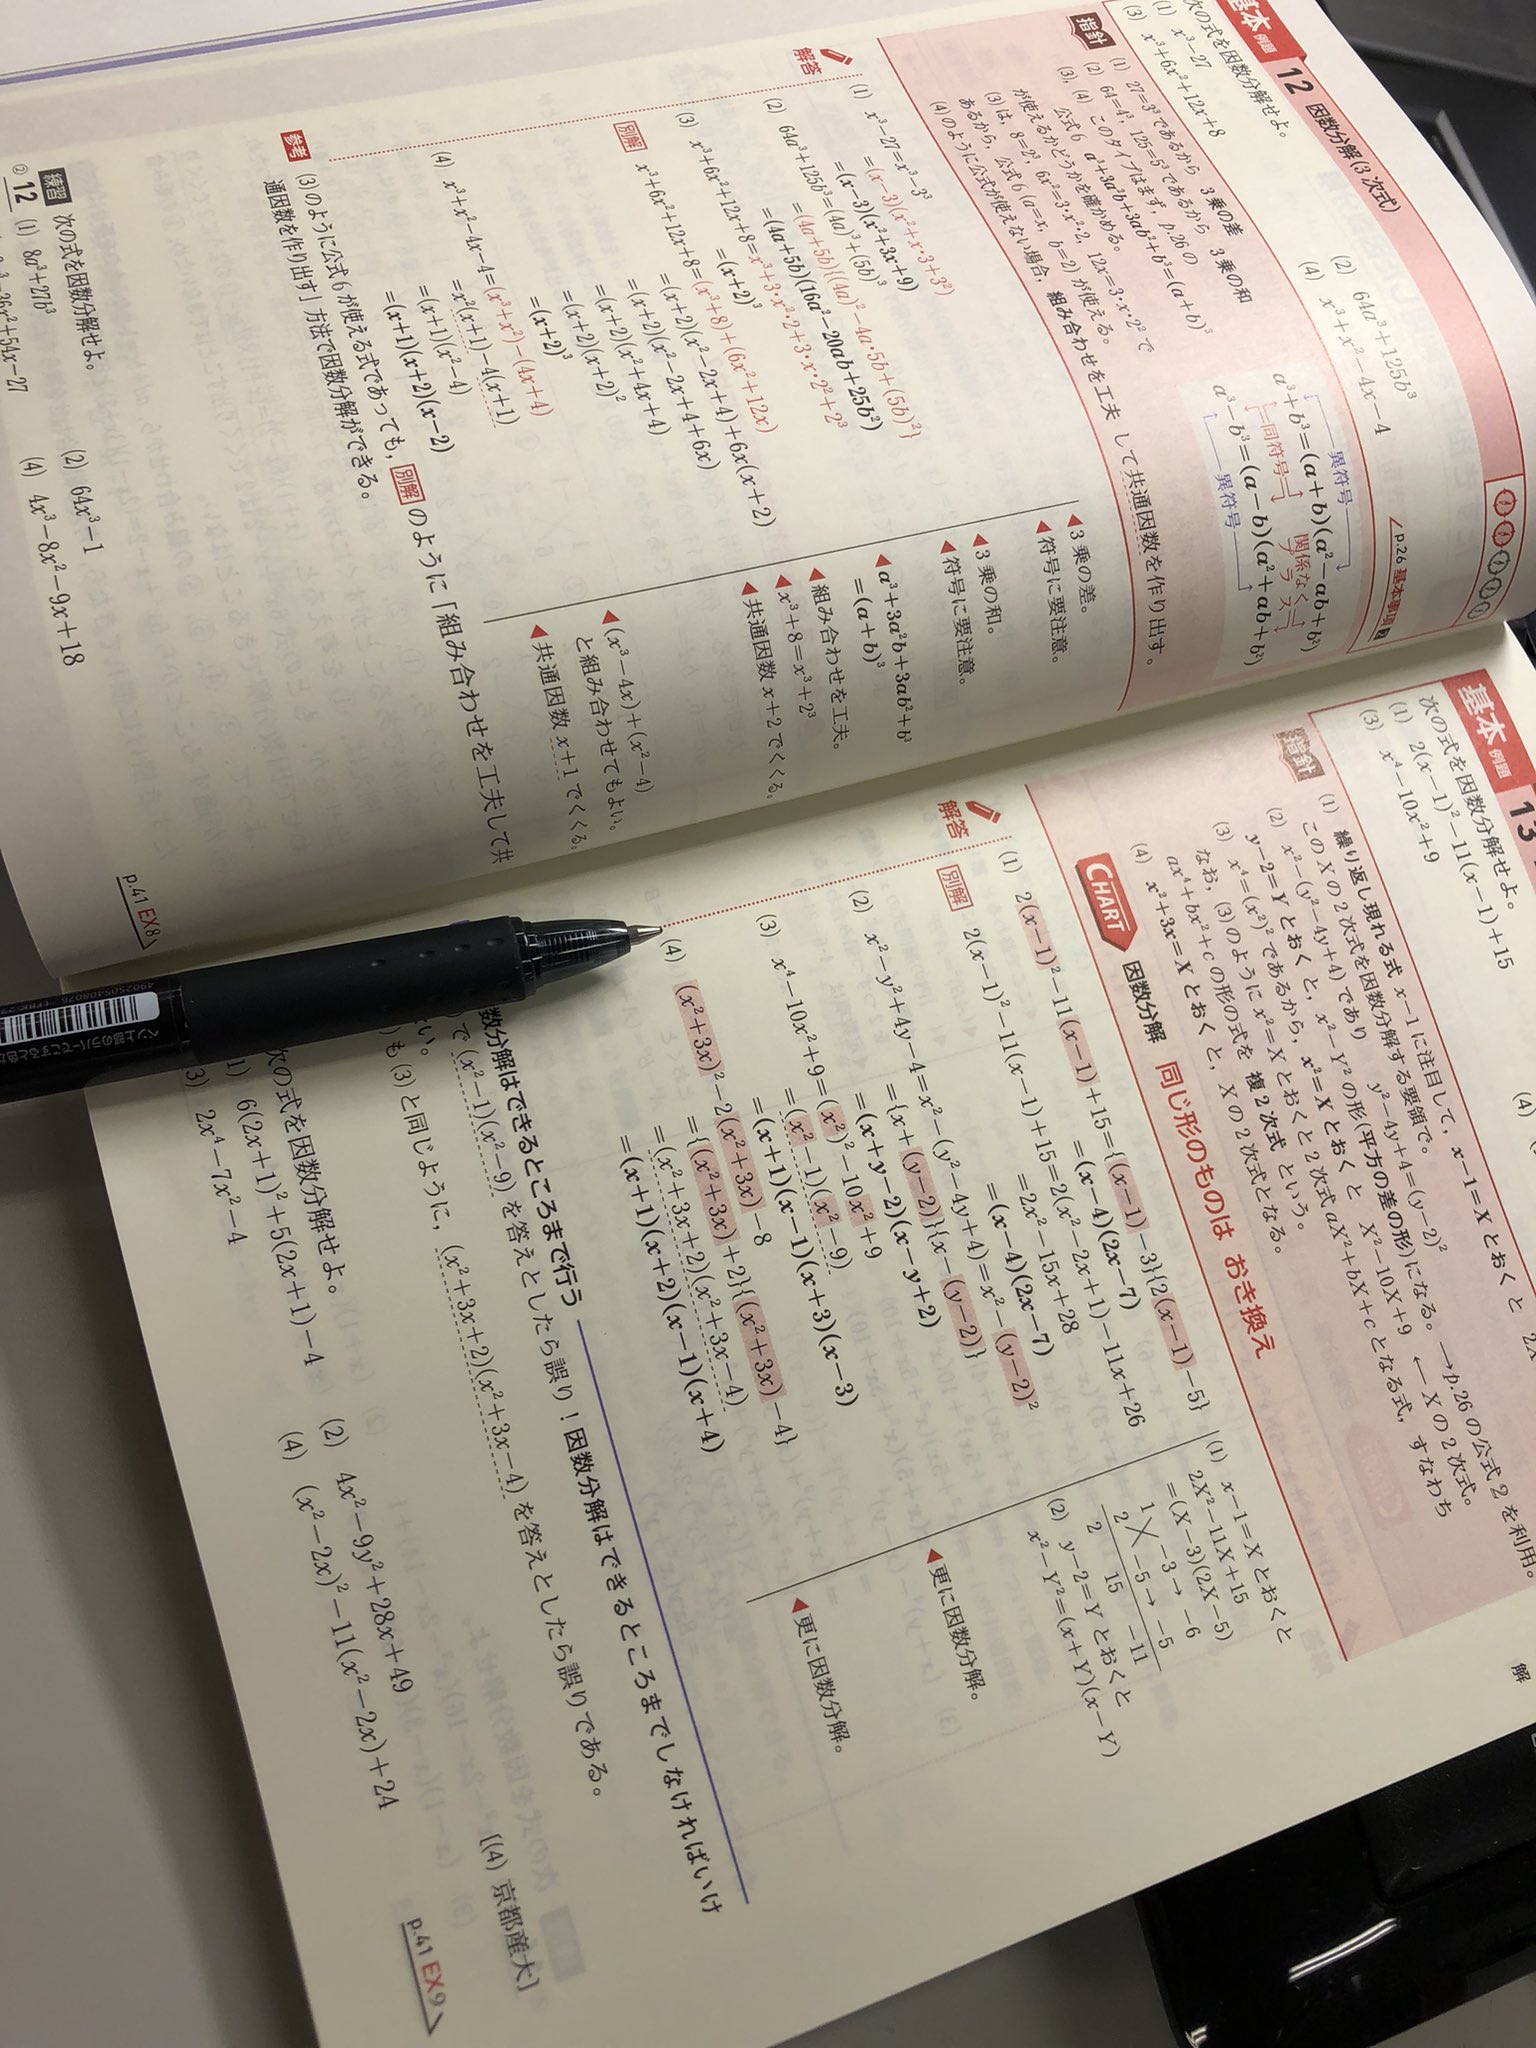 基本 例題 12 因数分解(3次式)
p.26 基本事項 2
次の式を因数分解せよ。
(1) x³−27
(2) 64a³+125b³
(3) x³+6x²+12x+8
(4) x³+x²−4x−4
指針
(1) 27=3³であるから 3乗の差
(2) 64=4³, 125=5³であるから 3乗の和
(3), (4) このタイプはまず, p.26の
公式6 a³+3a²b+3ab²+b³=(a+b)³
が使えるかどうかを確かめる。
(3)は, 8=2³, 6x²=3・x²・2, 12x=3・x・2² で
あるから, 公式6 (a=x, b=2) が使える。
(4)のように公式が使えない場合, 組み合わせを工夫 して共通因数を作り出す。
異符号
a³+b³=(a+b)(a²−ab+b²)
同符号 関係なくプラス
a³−b³=(a−b)(a²+ab+b²)
異符号
解答
(1) x³−27=x³−3³
=(x−3)(x²+x・3+3²)
=(x−3)(x²+3x+9)
◀3乗の差。
◀符号に要注意。
(2) 64a³+125b³=(4a)³+(5b)³
=(4a+5b){(4a)²−4a・5b+(5b)²}
=(4a+5b)(16a²−20ab+25b²)
◀3乗の和。
◀符号に要注意。
(3) x³+6x²+12x+8=x³+3・x²・2+3・x・2²+2³
=(x+2)³
◀a³+3a²b+3ab²+b³
=(a+b)³
別解 x³+6x²+12x+8=(x³+8)+(6x²+12x)
=(x+2)(x²−2x+4)+6x(x+2)
=(x+2)(x²−2x+4+6x)
=(x+2)(x²+4x+4)
=(x+2)(x+2)²
=(x+2)³
◀組み合わせを工夫。
◀x³+8=x³+2³
◀共通因数 x+2 でくくる。
(4) x³+x²−4x−4=(x³+x²)−(4x+4)
=x²(x+1)−4(x+1)
=(x+1)(x²−4)
=(x+1)(x+2)(x−2)
◀(x³−4x)+(x²−4)
と組み合わせてもよい。
◀共通因数 x+1 でくくる。
参考 (3)のように公式6が使える式であっても, 別解 のように「組み合わせを工夫して共
通因数を作り出す」方法で因数分解ができる。
練習 次の式を因数分解せよ。
② 12 (1) 8a³+27b³
(2) 64x³−1
36x²+54x−27
(4) 4x³−8x²−9x+18
p.41 EX8
基本 例題 13
次の式を因数分解せよ。
(1) 2(x−1)²−11(x−1)+15
(3) x⁴−10x²+9
(4)
指針
(1) 繰り返し現れる式 x−1 に注目して, x−1=X とおくと
このXの2次式を因数分解する要領で。
(2) x²−(y²−4y+4) であり y²−4y+4=(y−2)²
y−2=Y とおくと, x²−Y² の形(平方の差の形)になる。 →p.26の公式2を利用。
(3) x⁴=(x²)² であるから, x²=X とおくと X²−10X+9 ←Xの2次式。
なお, (3)のように x²=X とおくと2次式 aX²+bX+c となる式, すなわち
ax⁴+bx²+c の形の式を 複2次式 という。
(4) x²+3x=X とおくと, Xの2次式となる。
CHART 因数分解 同じ形のものは おき換え
解答
(1) 2(x−1)²−11(x−1)+15={(x−1)−3}{2(x−1)−5}
=(x−4)(2x−7)
別解 2(x−1)²−11(x−1)+15=2(x²−2x+1)−11x+26
=2x²−15x+28
=(x−4)(2x−7)
(2) x²−y²+4y−4=x²−(y²−4y+4)=x²−(y−2)²
={x+(y−2)}{x−(y−2)}
=(x+y−2)(x−y+2)
(3) x⁴−10x²+9=(x²)²−10x²+9
=(x²−1)(x²−9)
=(x+1)(x−1)(x+3)(x−3)
(4) (x²+3x)²−2(x²+3x)−8
={(x²+3x)+2}{(x²+3x)−4}
=(x²+3x+2)(x²+3x−4)
=(x+1)(x+2)(x−1)(x+4)
(1) x−1=X とおくと
2X²−11X+15
=(X−3)(2X−5)
1 −3 → −6
2 −5 → −5
2 15 −11
(2) y−2=Y とおくと
x²−Y²=(x+Y)(x−Y)
◀更に因数分解。
◀更に因数分解。
数分解はできるところまで行う
で(x²−1)(x²−9) を答えとしたら誤り！因数分解はできるところまでしなければいけ
い。
も(3)と同じように, (x²+3x+2)(x²+3x−4) を答えとしたら誤りである。
次の式を因数分解せよ。
1) 6(2x+1)²+5(2x+1)−4
(2) 4x²−9y²+28x+49
3) 2x⁴−7x²−4
(4) (x²−2x)²−11(x²−2x)+24
[(4) 京都産大]
p.41 EX9